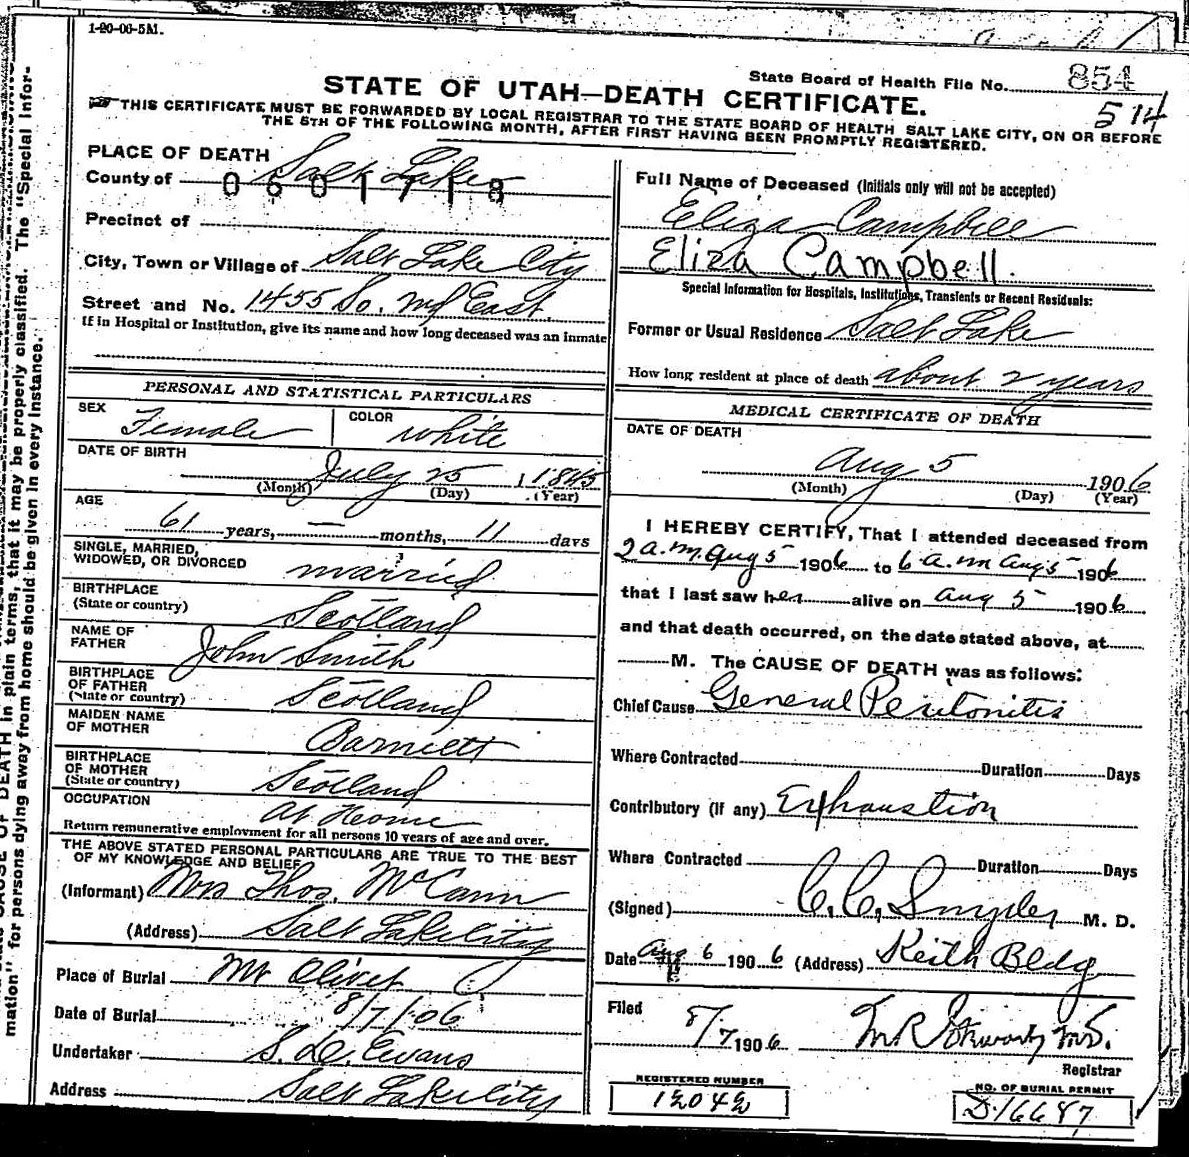 1-20-06-5M.
State Board of Health File No. 854
514
STATE OF UTAH—DEATH CERTIFICATE.
THIS CERTIFICATE MUST BE FORWARDED BY LOCAL REGISTRAR TO THE STATE BOARD OF HEALTH SALT LAKE CITY, ON OR BEFORE
THE 5TH OF THE FOLLOWING MONTH, AFTER FIRST HAVING BEEN PROMPTLY REGISTERED.
PLACE OF DEATH
County of Salt Lake
0601718
Precinct of
City, Town or Village of Salt Lake City
Street and No. 1455 So. East.
If in Hospital or Institution, give its name and how long deceased was an inmate
PERSONAL AND STATISTICAL PARTICULARS
SEX Female COLOR white
DATE OF BIRTH
July 25, 1845
(Month) (Day) (Year)
AGE
61 years, — months, 11 days
SINGLE, MARRIED,
WIDOWED, OR DIVORCED married
BIRTHPLACE
(State or country) Scotland
NAME OF
FATHER John Smith
BIRTHPLACE
OF FATHER
(State or country) Scotland
MAIDEN NAME
OF MOTHER Barnett
BIRTHPLACE
OF MOTHER
(State or country) Scotland
OCCUPATION At Home
Return remunerative employment for all persons 10 years of age and over.
THE ABOVE STATED PERSONAL PARTICULARS ARE TRUE TO THE BEST
OF MY KNOWLEDGE AND BELIEF
(Informant) Mrs Thos. McCann
(Address) Salt Lake City
Place of Burial Mt Olivet
Date of Burial 8/7/06
Undertaker S. D. Evans
Address Salt Lake City
Full Name of Deceased (Initials only will not be accepted)
Eliza Campbell
Eliza Campbell.
Special Information for Hospitals, Institutions, Transients or Recent Residents:
Former or Usual Residence Salt Lake
How long resident at place of death about 2 years
MEDICAL CERTIFICATE OF DEATH
DATE OF DEATH
Aug 5 1906
(Month) (Day) (Year)
I HEREBY CERTIFY, That I attended deceased from
2 a.m. Aug 5 1906 to 6 a.m Aug 5 1906
that I last saw her alive on Aug 5 1906
and that death occurred, on the date stated above, at
M. The CAUSE OF DEATH was as follows:
Chief Cause General Peritonitis
Where Contracted Duration Days
Contributory (if any) Exhaustion
Where Contracted Duration Days
(Signed) C. C. Snyder M. D.
Date Aug 6 1906 (Address) Keith Bldg
Filed
8/7 1906
Registrar
REGISTERED NUMBER
12042
NO. OF BURIAL PERMIT
D.16687
in plain terms, that it may be properly classified. The "Special Infor-
mation" for persons dying away from home should be given in every instance.